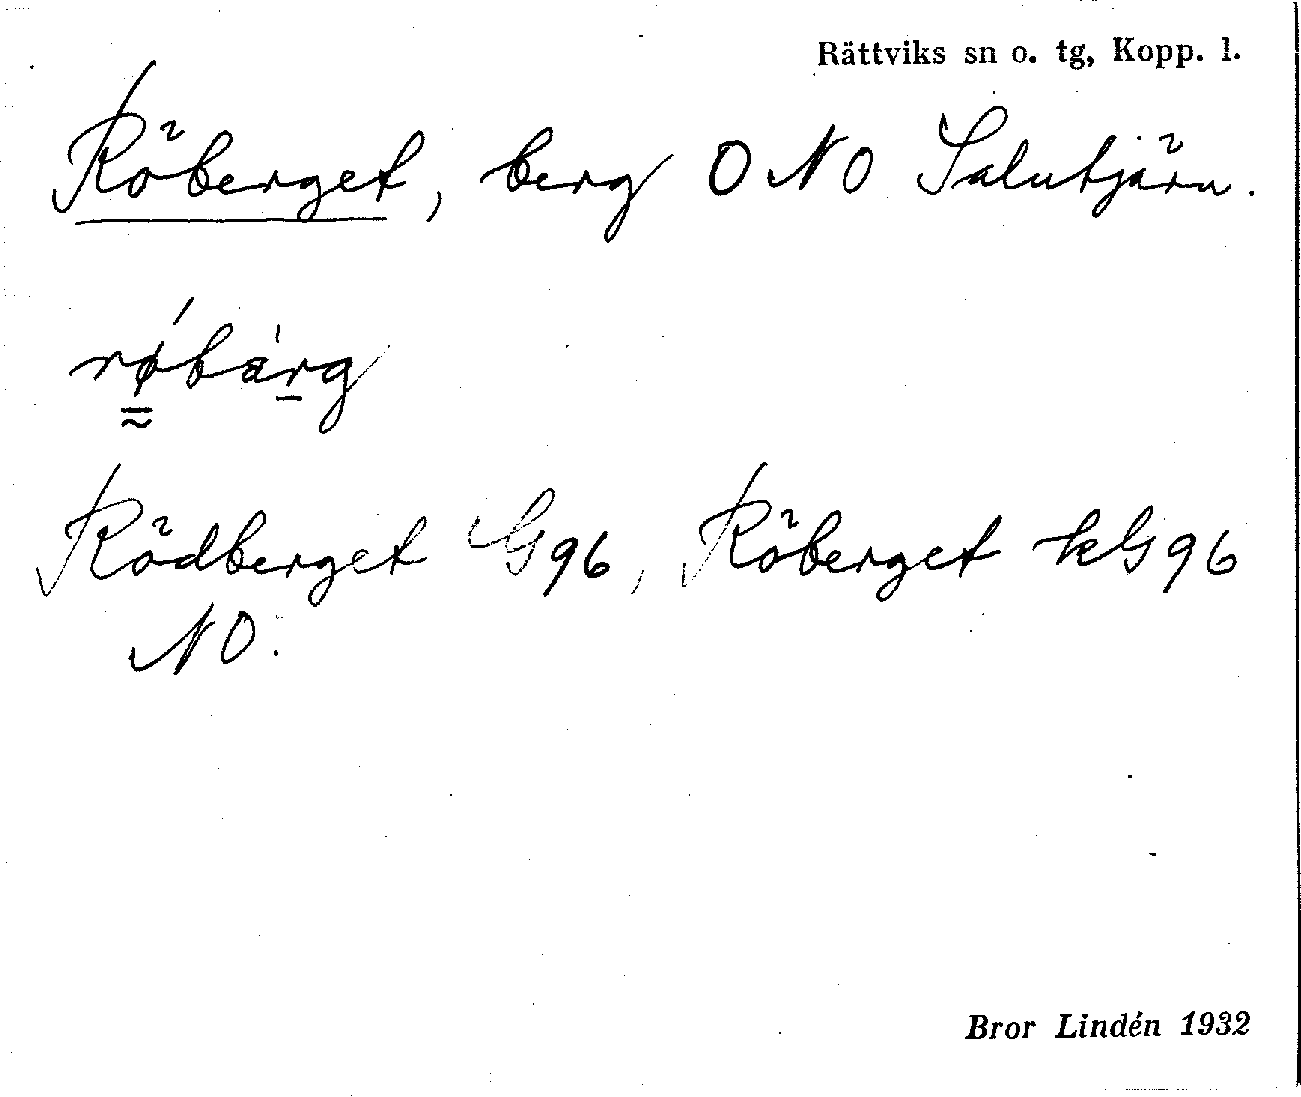 Rättviks sn o. tg, Kopp. l.
Röberget, berg ONO Salutjärn.
røbärg
Rödberget G96, Röberget kG96
NO.
Bror Lindén 1932